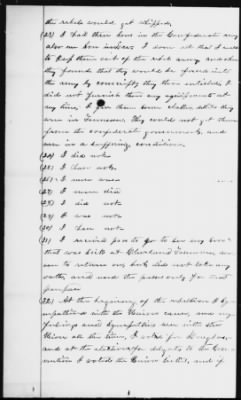 the rebels would get whipped.
(23) I had three sons in the Confederate army
also son in laws. I done all that I could
to keep them out of the rebel army and when
they found that they would be forced into
the army by conscription they then enlisted. I
did not furnish them any equipment at
any time. I gave them some clothes while they
were in Tennessee they could not get them
from the confederate government, and
were in a suffering condition.
(24) I did not
(25) I have not
(26) I never
(27) I never did
(28) I did not
(29) I was not
(30) I have not
(31) I received pass to go to see my son
that was sick at Cleveland Tennessee, and
to return did not take any
oath, and used the passes only for that
purpose
(32) At the beginning of the rebellion I sym-
pathised with the Union cause, and my
feelings and sympathies were with the
Union all the time, I voted for Douglas,
and at the election for delegates to the Con-
vention I voted the Union ticket, and if